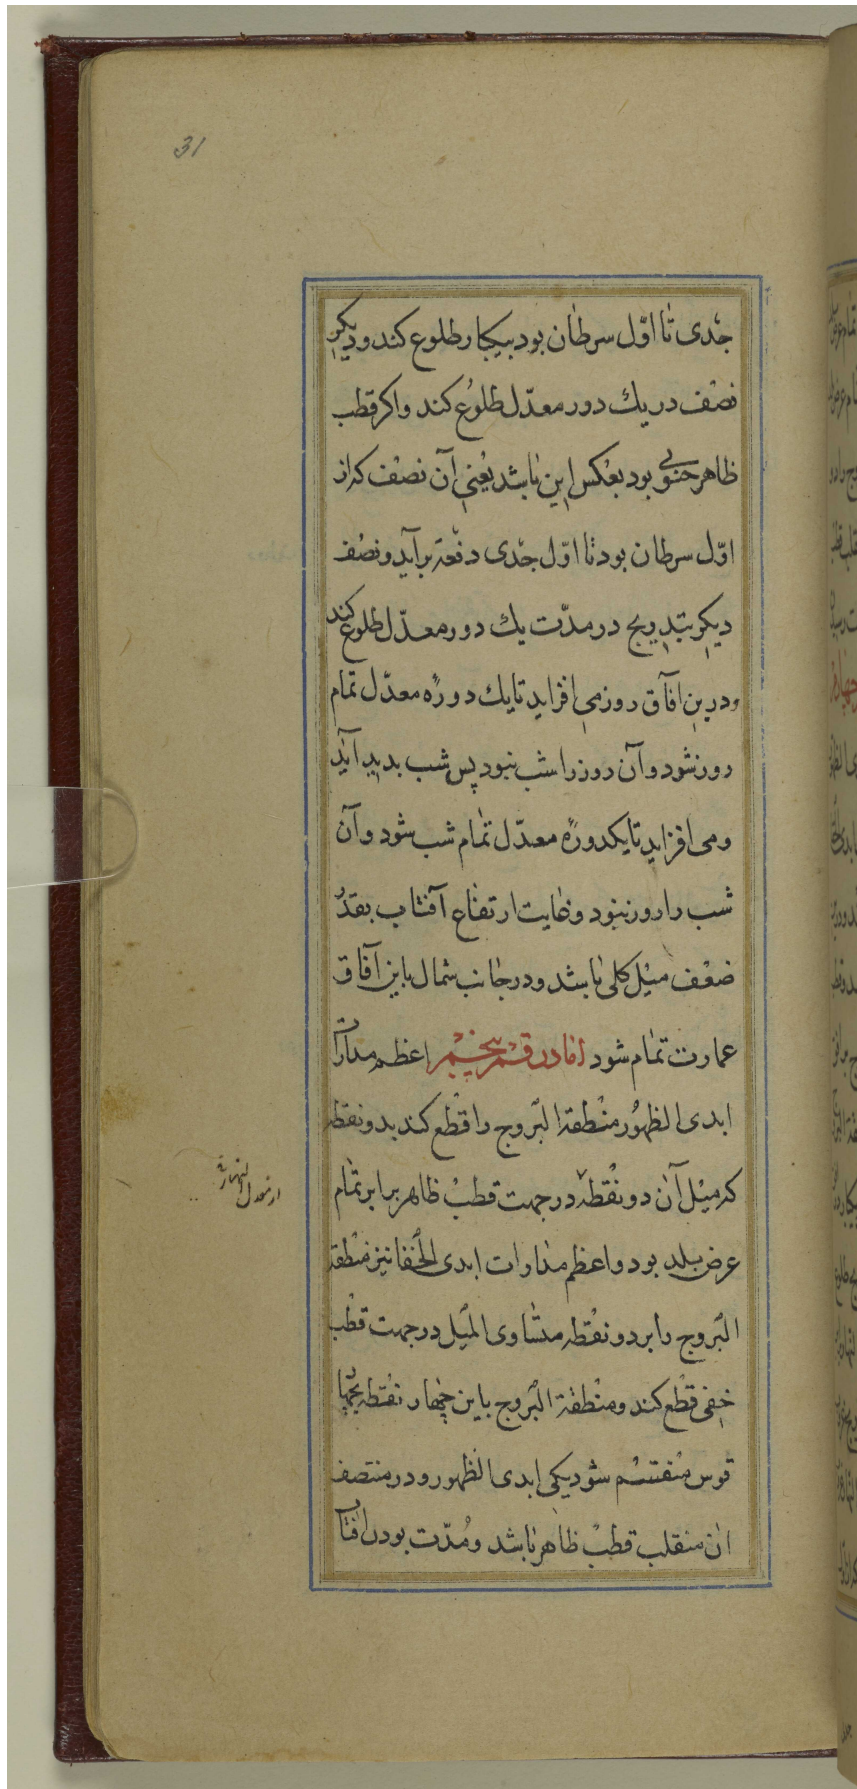 31
جدی تا اوّل سرطان بود بیکبار طلوع کند و دیکر
نصف در یك دور معدّل طلوع کند و اکر قطب
ظاهر جنوبی بود بعکس این باشد یعنی آن نصف که از
اوّل سرطان بود تا اوّل جدی دفعة برآید و نصف
دیکر بتدریج در مدّت یك دور معدّل طلوع کند
و درین افآق روز می افزاید تا یك دوره معدّل تمام
روز شود و آن روز را شب نبود پس شب بدید آید
و می افزاید تا یکدوره معدّل تمام شب شود و آن
شب را روز نبود و غایت ارتفاع آفتاب بقدر
ضعف میل کلی باشد و در جانب شمال باین آفاق
عمارت تمام شود اما در قسم پنجم اعظم مدارات
ابدی الظهور منطقة البروج را قطع کند بدو نقطه
که میل آن دو نقطه در جهت قطب ظاهر برابر تمام
عرض بلد بود و اعظم مدارات ابدی الخفا نیز منطقة
البروج را بر دو نقطه متساوی المیل در جهت قطب
خفی قطع کند و منطقة البروج باین چهار نقطه بچهار
قوس منقسم شود یکی ابدی الظهور و در منتصف
ان منقلب قطب ظاهر باشد و مُدّت بودن افتاب
از معدل النهار